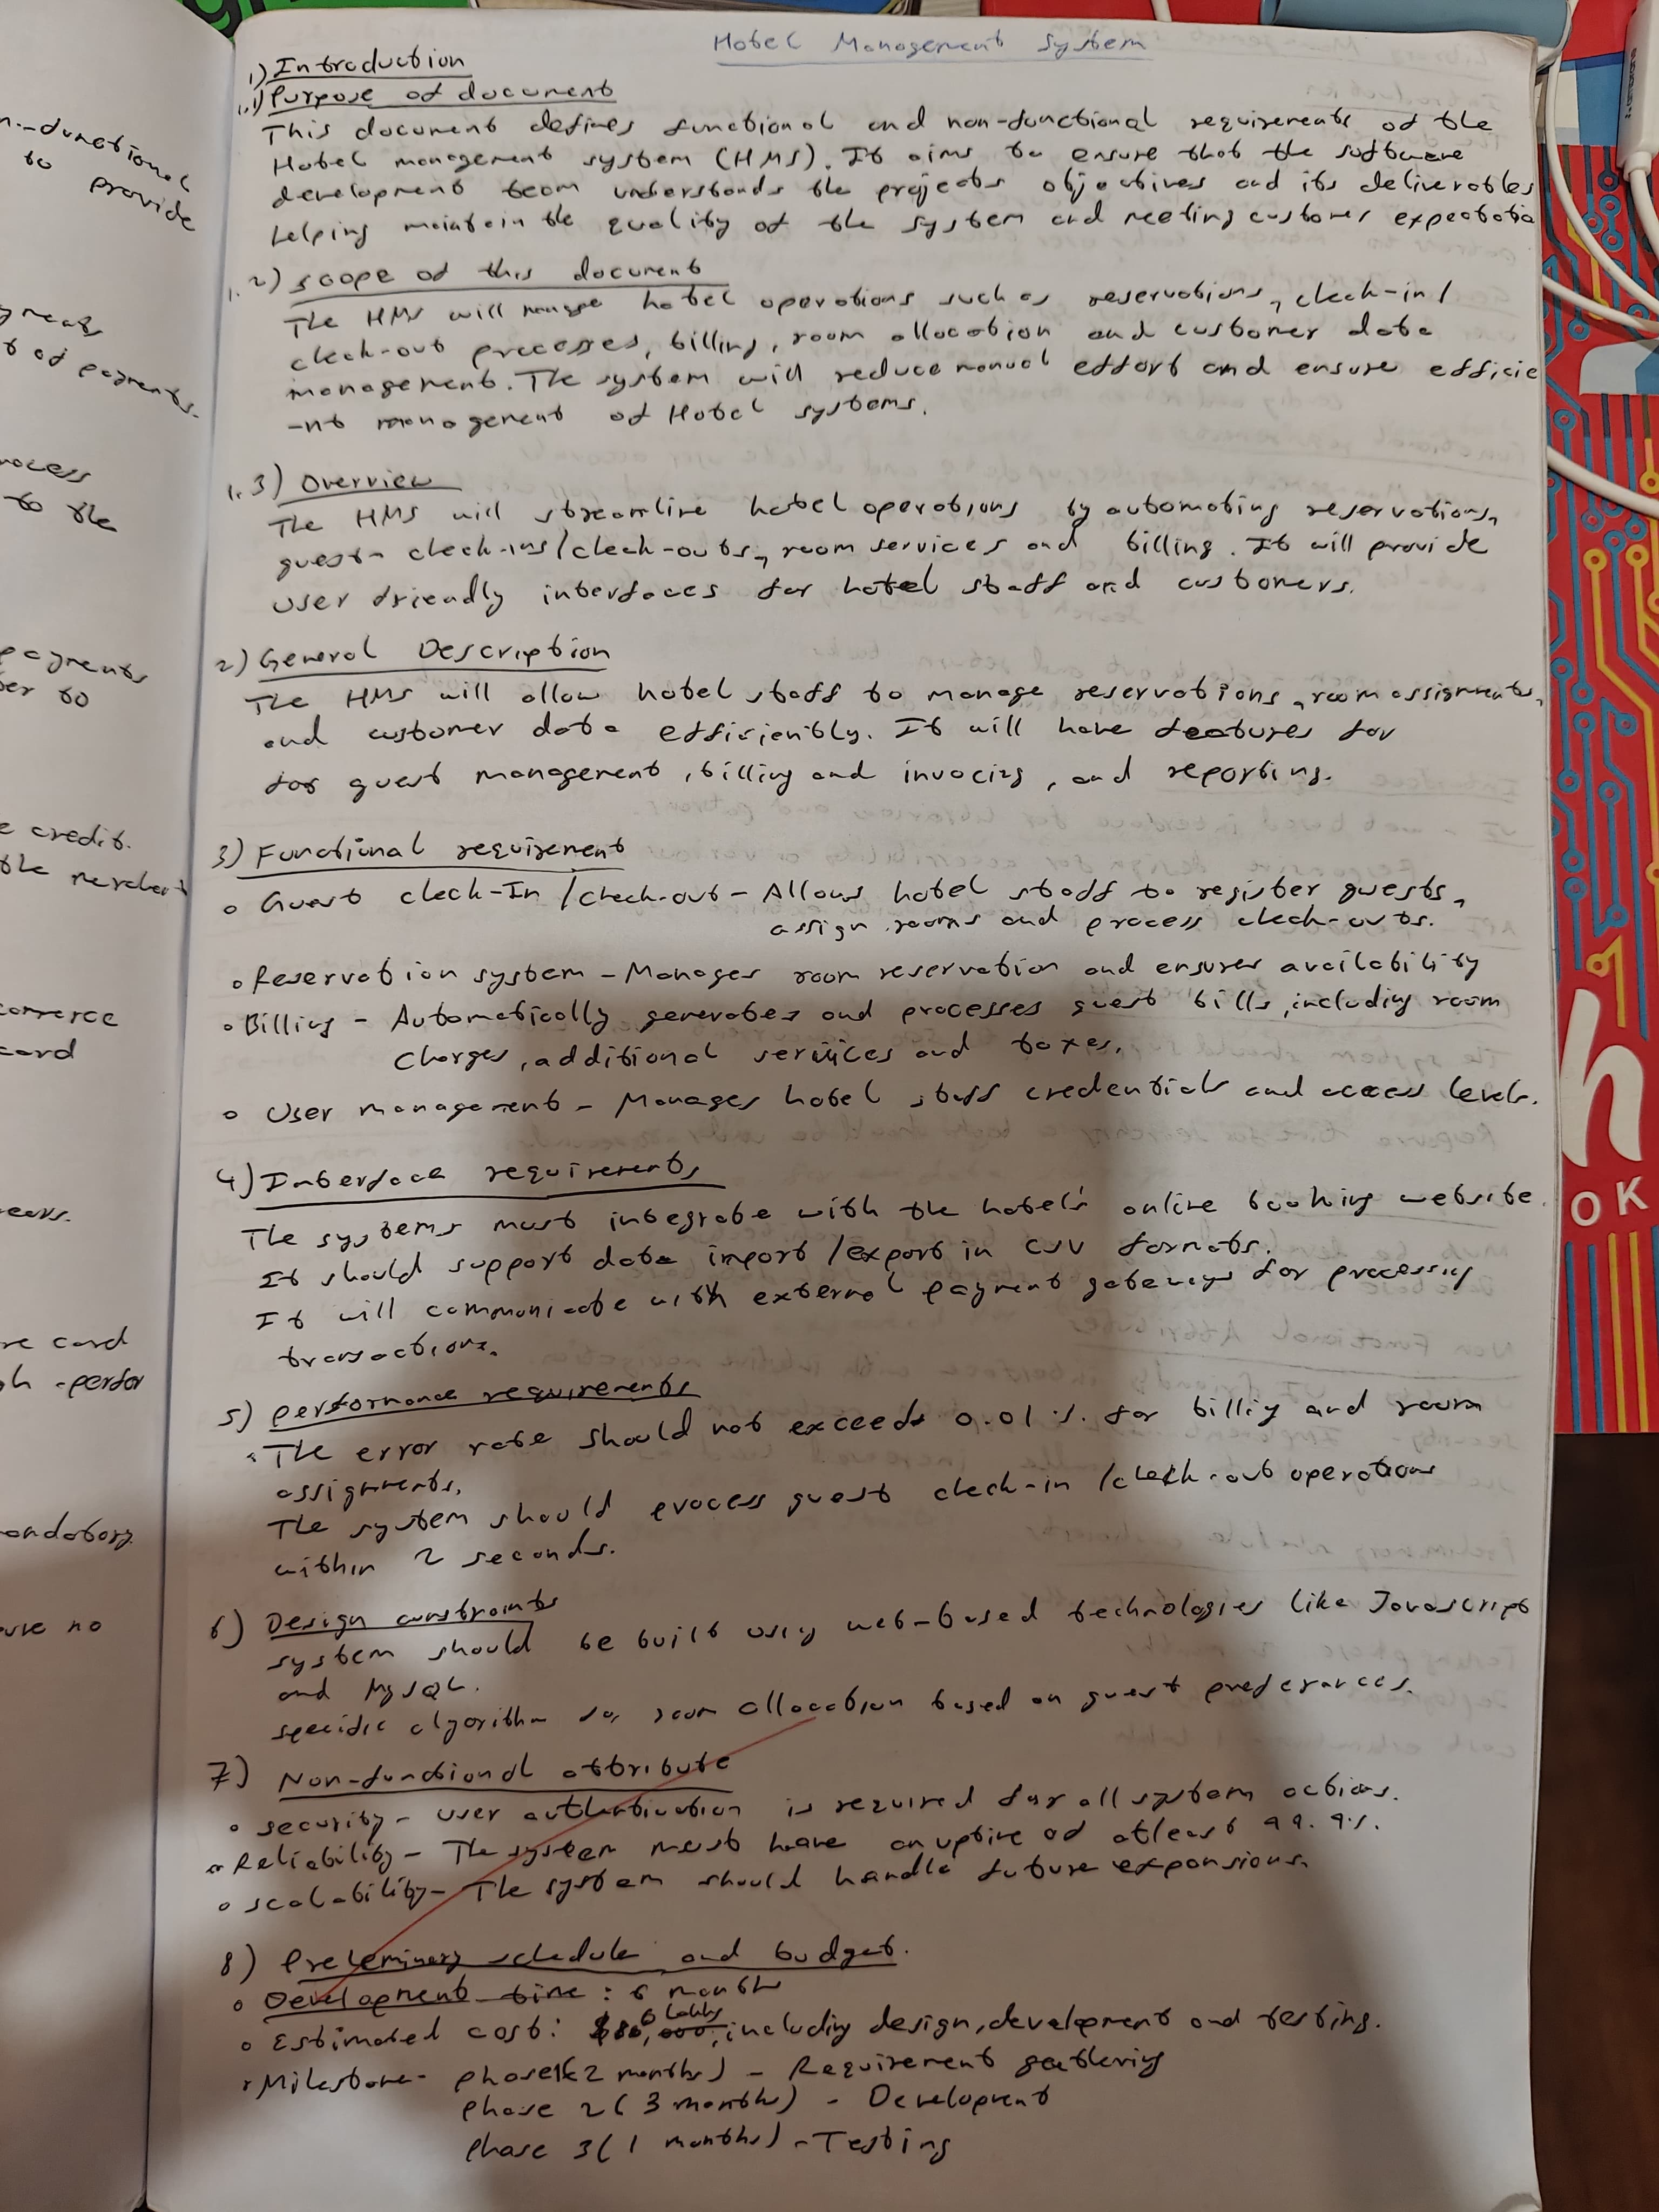 Hotel Management System
1) Introduction
1.1) Purpose of document
This document defines functional and non-functional requirements of the
Hotel management system (HMS). It aims to ensure that the software
development team understands the projects objectives and its deliverables
helping maintain the quality of the system and meeting customer expectatio
1.2) scope of this document
The HMS will manage hotel operations such as reservations, check-in/
check-out processes, billing, room allocation and customer data
management. The system will reduce manual effort and ensure efficie
-nt management of Hotel systems.
1.3) Overview
The HMS will streamline hotel operations by automating reservations,
guest- check-ins/check-outs, room services and billing. It will provide
user friendly interfaces for hotel staff and customers.
2) General Description
The HMS will allow hotel staff to manage reservations, room assignments,
and customer data efficiently. It will have features for
for guest management, billing and invocing, and reporting.
3) Functional requirement
o Guest check-In /check-out - Allows hotel staff to register guests,
assign rooms and process check-outs.
o Reservation system - Manages room reservation and ensures availability
o Billing - Automatically generates and processes guest bills, including room
charges, additional services and taxes.
o User management - Manages hotel staff credentials and access levels.
4) Interface requirements
The systems must integrate with the hotel's online booking website.
It should support data import /export in CSV formats.
It will communicate with external payment gateways for processing
transactions.
5) performance requirements
The error rate should not exceeds 0.01 %. for billing and room
assignments.
The system should process guest check-in /check-out operations
within 2 seconds.
6) Design constraints
system should be built using web-based technologies like Javascript
and MySQL.
specific algorithm for room allocation based on guest preferances.
7) Non-functional attribute
o security - user authentication is required for all system actions.
o Reliability - The system must have an uptime of atleast 99.9%.
o scalability - The system should handle future expansions.
8) Preleminary schedule and budget.
o Development time : 6 months
o Estimated cost: 6 lakhs, including design, development and testing.
Milestone - phase 1 (2 months) - Requirement gathering
phase 2 ( 3 months) - Development
phase 3 ( 1 months) - Testing
n.-functional
to provide
t of payments.
rocess
to the
payments
er to
e credit.
the merchant
commerce
card
re card
gh -perfor
andatory.
ure no
OK